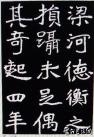 梁河德衡之
損躡未足偶
其奇起四年